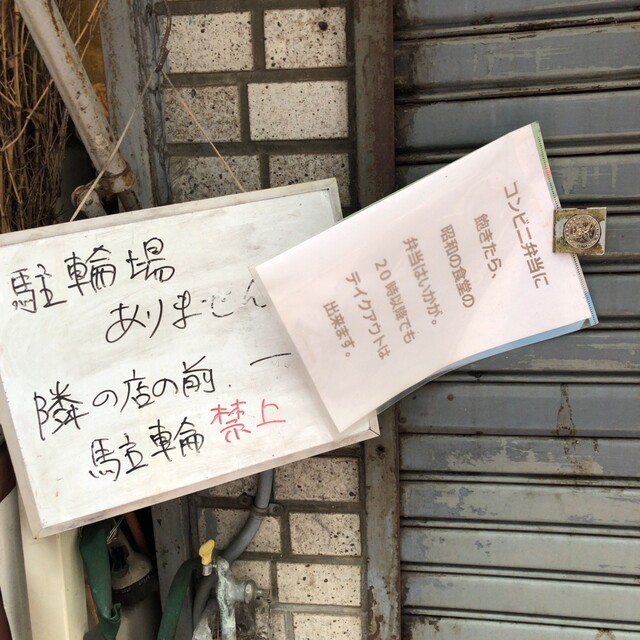 駐輪場
ありません
隣の店の前、一
駐輪禁止
コンビニ弁当に
飽きたら、
昭和の食堂の
弁当はいかが。
20時以降でも
テイクアウトは
出来ます。